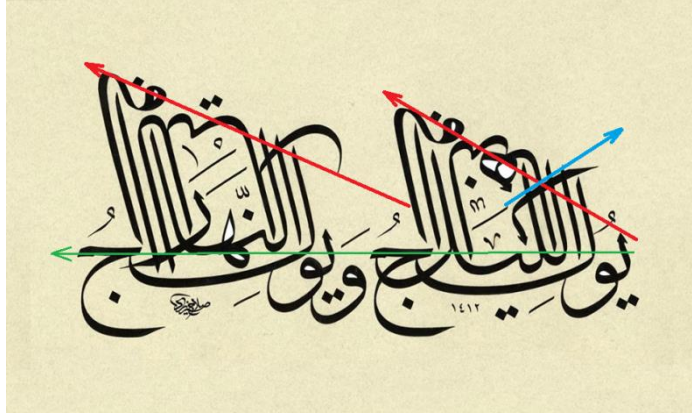 يولج الليل في النهار
ويولج النهار في الليل
١٤١٢